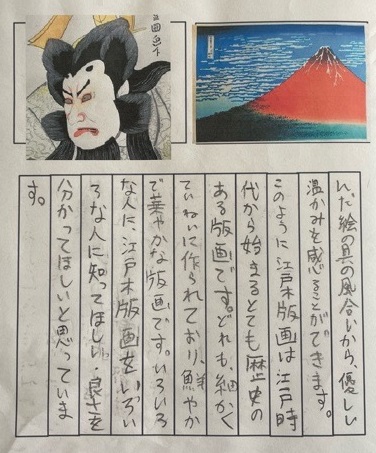 んだ絵の具の風合いから、優しい
温かみを感ることができます。
このように江戸木版画は江戸時
代から始まるとても歴史の
ある版画です。どれも、細かく
ていねいに作られており、鮮やか
で華やかな版画です。いろいろ
な人に、江戸木版画をいろい
ろな人に知ってほしい・良さを
分かってほしいと思っていま
す。